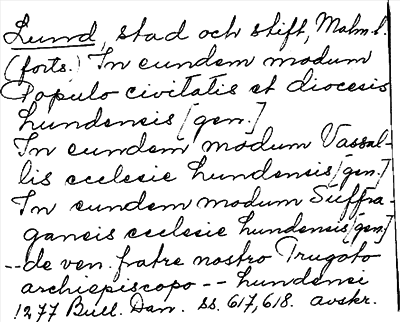 Lund, stad och stift, Malm. l.
(forts.) In eundem modum
Populo civitatis et diocesis
Lundensis [gen.]
In eundem modum Vassal-
lis eclesie Lundensis [gen.]
In eundem modum Suffra-
ganeis eclesie Lundensis [gen.]
-- de ven. fratre nostro Trugoto
archiepiscopo -- Lundensi
1277 Bull. Dan. ss. 617, 618. avskr.